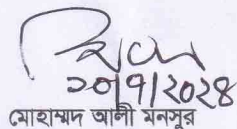 ২০/৭/২০২৪
মোহাম্মদ আলী মনসুর